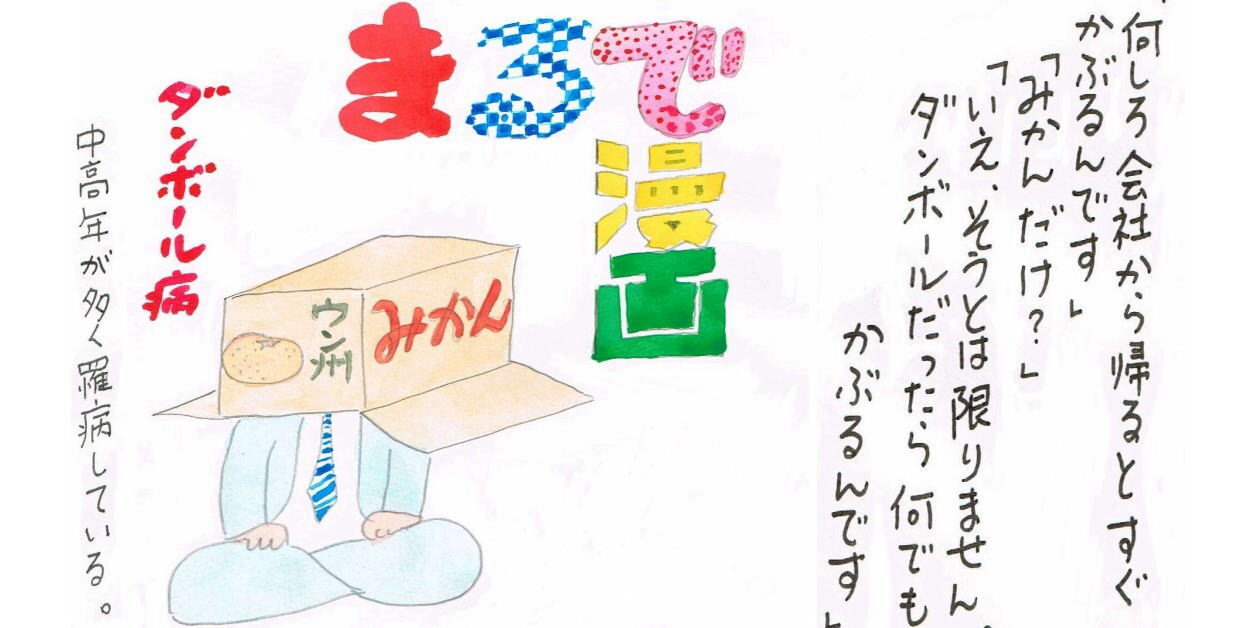 「何しろ会社から帰るとすぐ
かぶるんです」
「みかんだけ？」
「いえ、そうとは限りません。
ダンボールだったら何でも
かぶるんです」
まるで
漫画
ダンボール病
中高年が多く罹病している。
みかん
ウン州